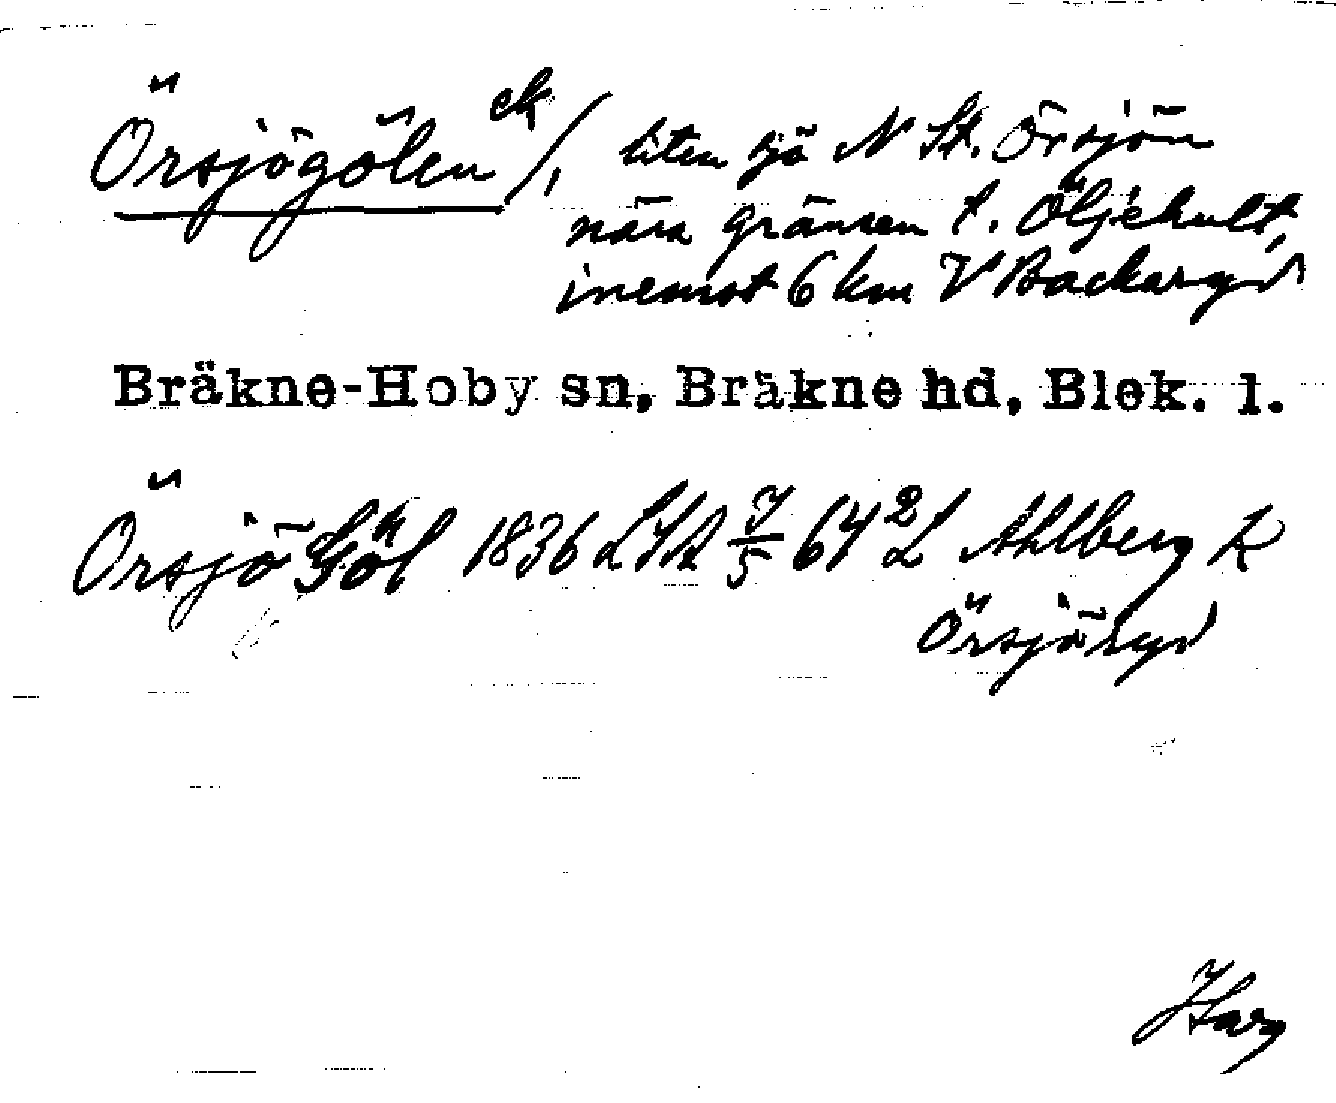 Örsjögölen ek/, liten sjö N St. Örsjön
nära gränsen t. Öljehult,
inemot 6 km V Backaryd
Bräkne-Hoby sn, Bräkne hd, Blek. l.
Örsjö Göl 1836 LSA 7/5 64 2L Ahlberg K
Örsjöryd